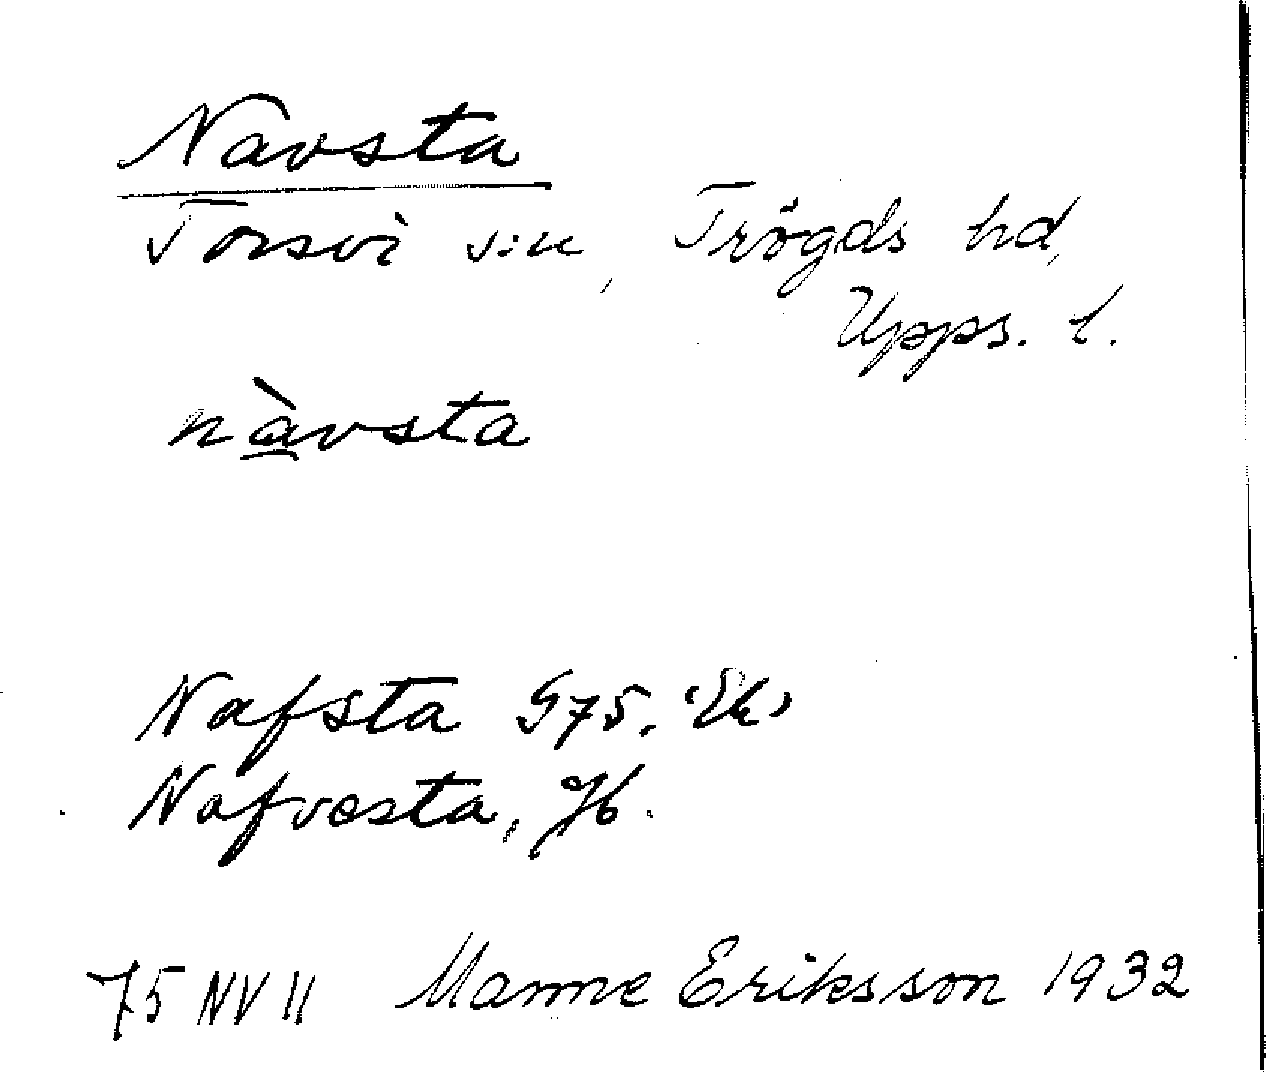 Navsta
Torsvi sn, Trögds hd,
Upps. l.
nàvsta
Nafsta G75. 'Ek'
Nafvesta, Jb.
75 NV 11 Manne Eriksson 1932